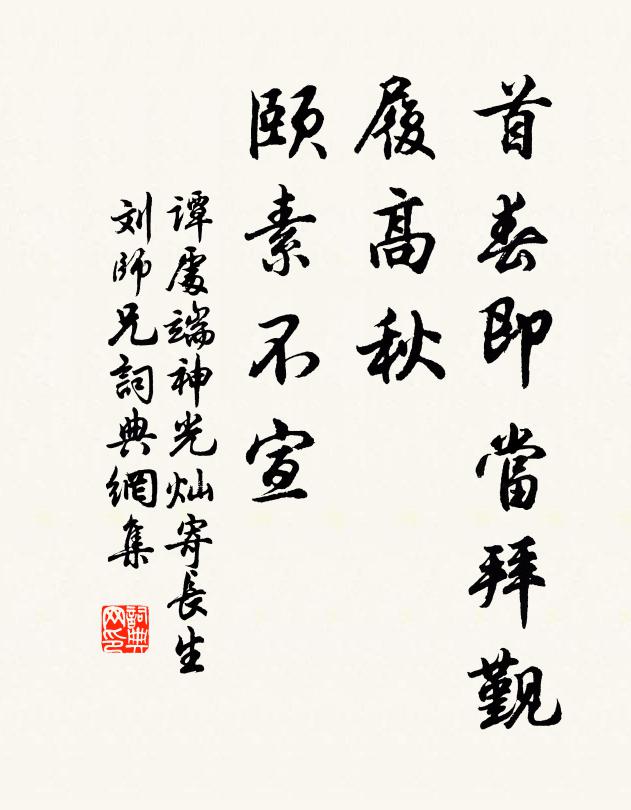 首春即當拜觐
履高秋
頤素不宣
譚處端神光灿寄長生
刘師兄詞典網集
詞典网印